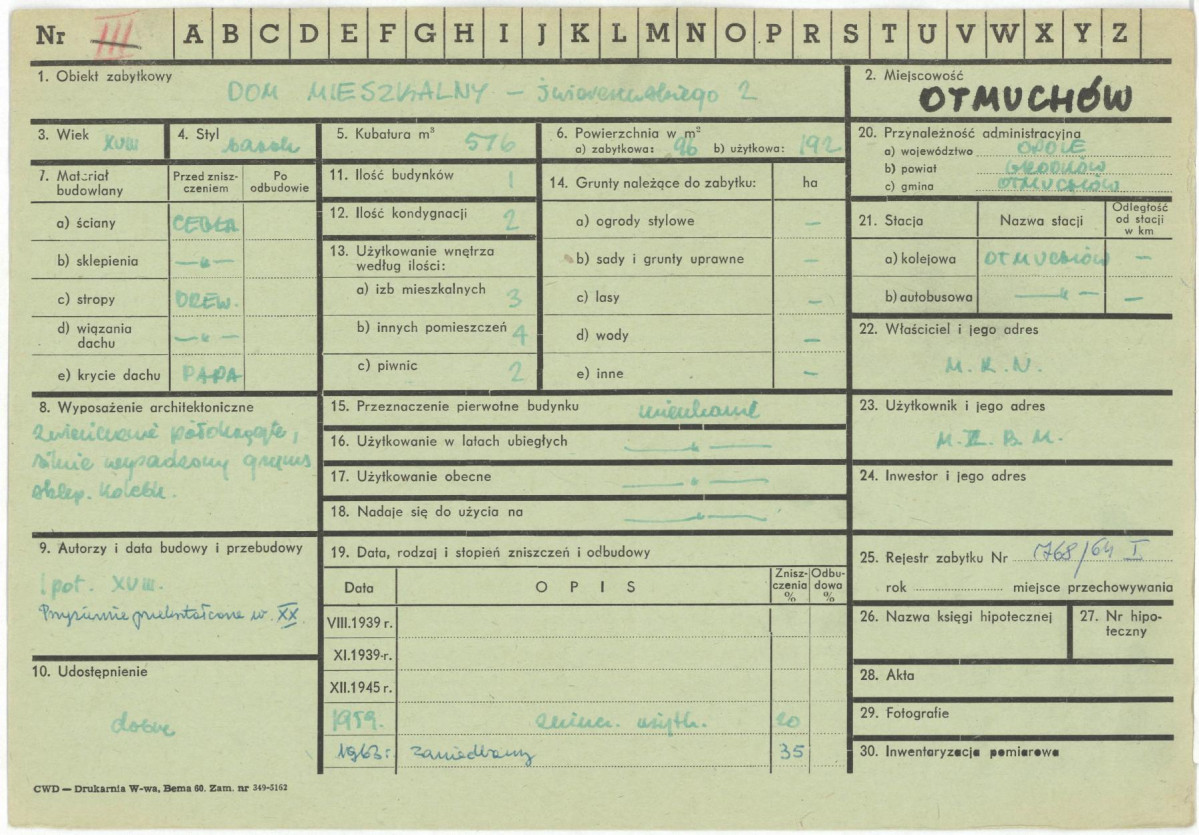 Nr III A B C D E F G H I J K L M N O P R S T U V W X Y Z
1. Obiekt zabytkowy
DOM MIESZKALNY – Świerczewskiego 2
2. Miejscowość
OTMUCHÓW
3. Wiek XVIII
4. Styl barok
5. Kubatura m³ 576
6. Powierzchnia w m²
a) zabytkowa: 96 b) użytkowa: 192
20. Przynależność administracyjna
a) województwo OPOLE
b) powiat GRODKÓW
c) gmina OTMUCHÓW
7. Materiał budowlany
Przed zniszczeniem
Po odbudowie
a) ściany CEGŁA
b) sklepienia —"—
c) stropy DREW.
d) wiązania dachu —"—
e) krycie dachu PAPA
11. Ilość budynków 1
12. Ilość kondygnacji 2
13. Użytkowanie wnętrza według ilości:
a) izb mieszkalnych 3
b) innych pomieszczeń 4
c) piwnic 2
14. Grunty należące do zabytku: ha
a) ogrody stylowe –
b) sady i grunty uprawne –
c) lasy –
d) wody –
e) inne –
21. Stacja Nazwa stacji Odległość od stacji w km
a) kolejowa OTMUCHÓW –
b) autobusowa —"— –
22. Właściciel i jego adres
M. R. N.
8. Wyposażenie architektoniczne
zwieńczenie półokrągłe,
silnie wysadzony gzyms
sklep. kolebk.
15. Przeznaczenie pierwotne budynku mieszkanie
16. Użytkowanie w latach ubiegłych —"—
17. Użytkowanie obecne —"—
18. Nadaje się do użycia na —"—
23. Użytkownik i jego adres
M. Z. B. M.
24. Inwestor i jego adres
9. Autorzy i data budowy i przebudowy
I poł. XVIII.
Przyziemie przekształcone w. XX
19. Data, rodzaj i stopień zniszczeń i odbudowy
Data OPIS Zniszczenia % Odbudowa %
VIII.1939 r.
XI.1939 r.
XII.1945 r.
1959. zniszcz. użytk. 20
1963: zaniedbany 35
25. Rejestr zabytku Nr 768/64 I
rok miejsce przechowywania
26. Nazwa księgi hipotecznej
27. Nr hipoteczny
10. Udostępnienie
dobre
28. Akta
29. Fotografie
30. Inwentaryzacja pomiarowa
CWD — Drukarnia W-wa, Bema 60. Zam. nr 349-5162